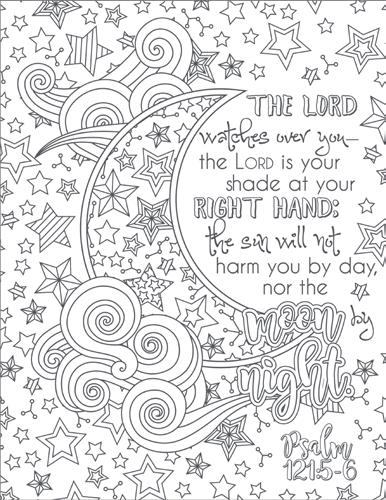 THE LORD
watches over you—
the LORD is your
shade at your
RIGHT HAND;
the sun will not
harm you by day,
nor the
moon by
night.
Psalm
121:5-6